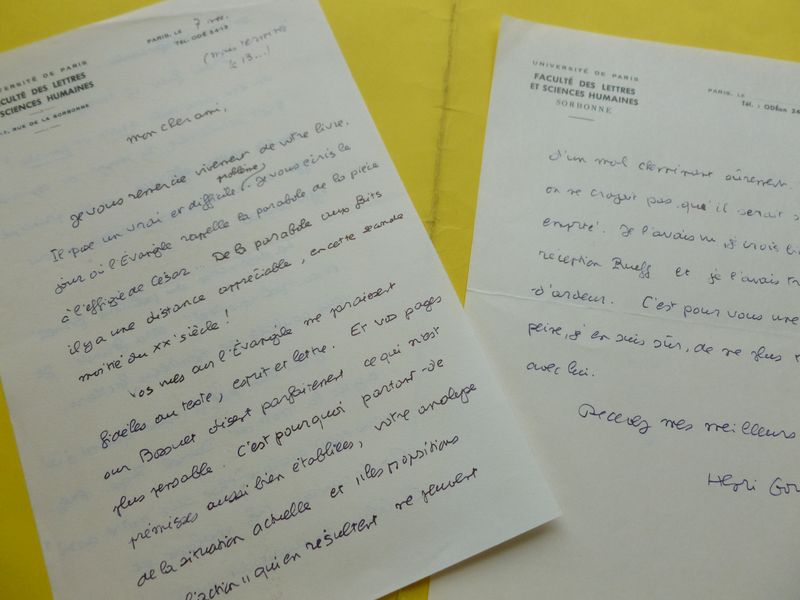 UNIVERSITÉ DE PARIS
FACULTÉ DES LETTRES
ET SCIENCES HUMAINES
17, RUE DE LA SORBONNE
PARIS, LE 7 nov.
TÉL. ODÉ 24-13
le 13...!
mon cher ami,
Je vous remercie vivement de votre livre.
Il pose un vrai et difficile problème. Je vous écris le
jour où l'Évangile rappelle la parabole de la pièce
à l'effigie de César. De la parabole aux faits
il y a une distance appréciable, en cette seconde
moitié du XXe siècle !
Vos vues sur l'Évangile me paraissent
fidèles au texte, esprit et lettre. Et vos pages
sur Bossuet disent parfaitement ce qui n'est
plus pensable. C'est pourquoi partant de
prémisses aussi bien établies, votre analyse
de la situation actuelle et "les propositions
d'action" qui en résultent ne peuvent
UNIVERSITÉ DE PARIS
FACULTÉ DES LETTRES
ET SCIENCES HUMAINES
SORBONNE
PARIS, LE
Tél. : ODÉon 24
d'un mal cheminant sûrement.
on ne croyait pas qu'il serait
emporté. Je l'avais vu, je crois
réception Rueff et je l'avais
d'ardeur. C'est pour vous une
peine, j'en suis sûr, de ne plus
avec lui.
Recevez mes meilleurs
Henri